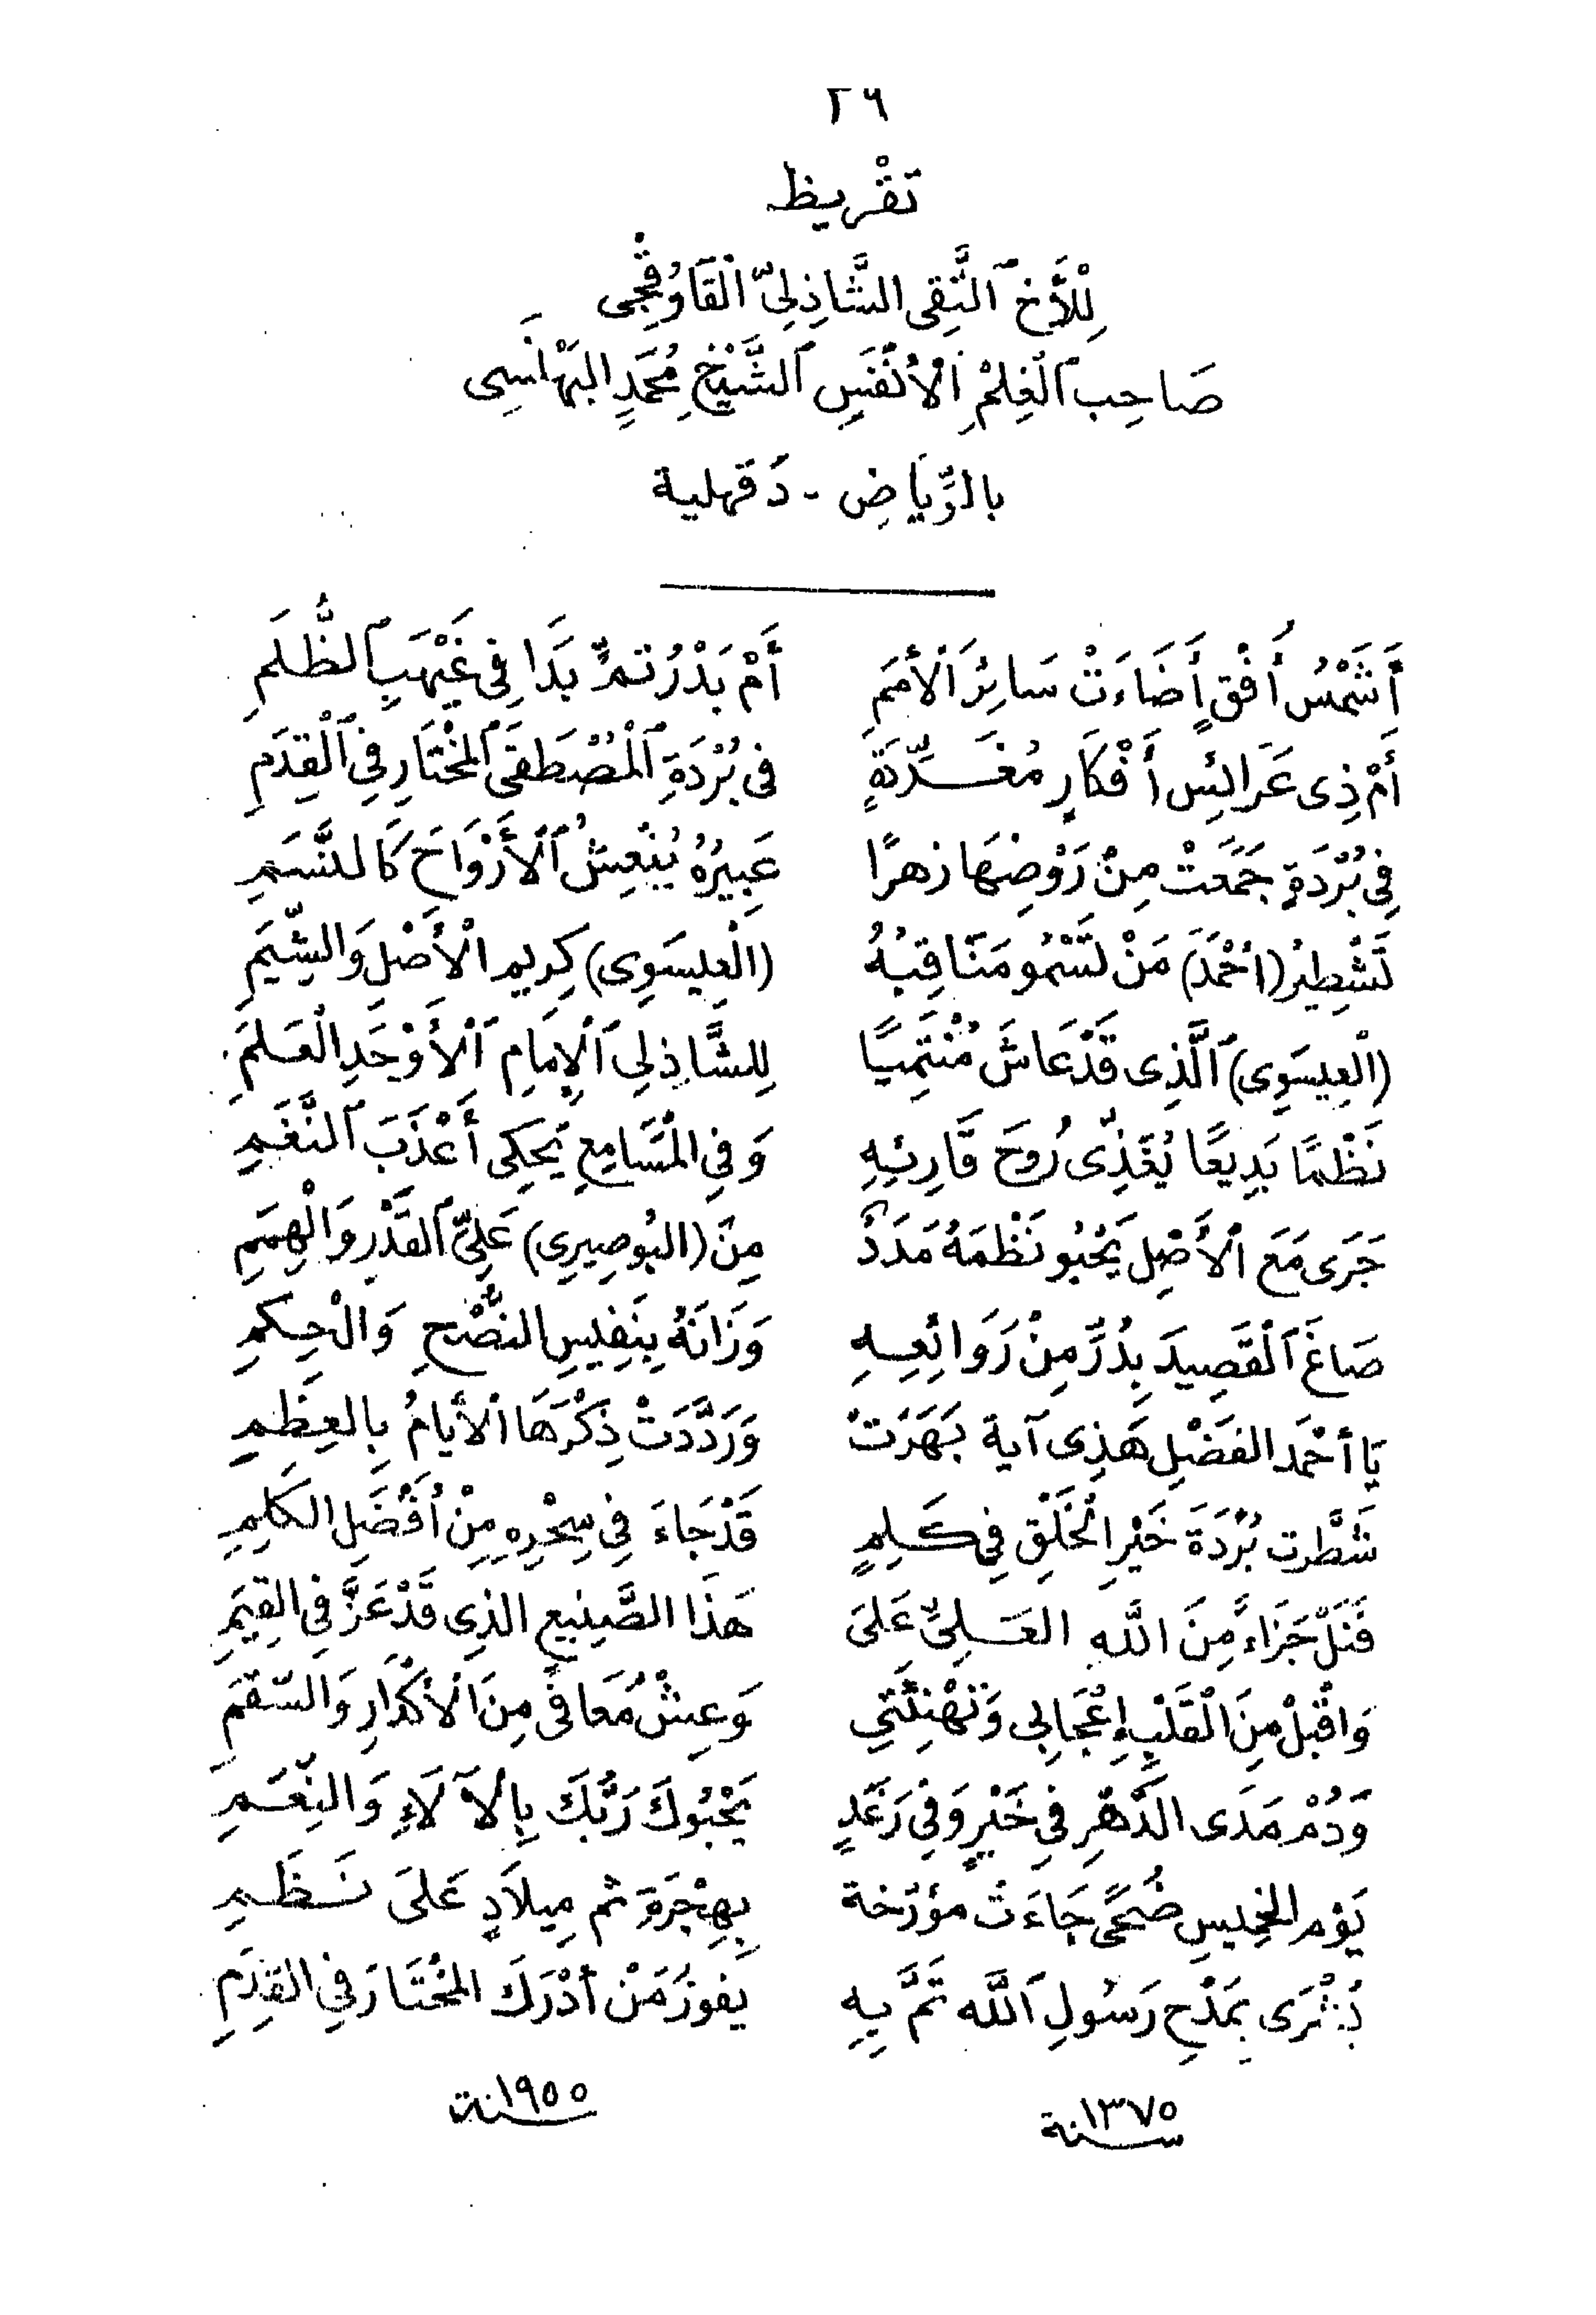 ٢٩
تَقْرِيظ
لِلْأَخِ ٱلتَّقِى الشَّاذِلِىِّ ٱلْقَاوُقْجِى
صَاحِبِ ٱلْعِلْمِ ٱلْأَنْفَسِ ٱلشَّيْخِ مُحَمَّدٍ البَهْنَسِى
بالرِّيَاضِ - دَقهلية
أَشَمْسُ أُفْقٍ أَضَاءَتْ سَائِرَ ٱلْأُمَمِ أَمْ بَدْرُ تمٍّ بَدَا فِى غَيْهَبِ ٱلظُّلَمِ
أَمْ ذِى عَرَائِس أَفْكَارٍ مُغَرِّدَةٍ فى بُرْدَةِ ٱلْمُصْطَفَى ٱلْمُخْتَارِ فِى ٱلْقِدَمِ
فِى بُرْدَةٍ جَمَّعَتْ مِنْ رَوْضِهَا زهرًا عَبِيرُهُ يُنْعِشُ ٱلْأَرْوَاحَ كَالنَّسَمِ
تَشْطِيرُ (أَحْمَدَ) مَنْ تَسْمُو مَنَاقِبُهُ (الْعِيسَوِى) كِرِيم الْأَصْلِ وَالشِّيَمِ
(الْعِيسَوِى) ٱلَّذِى قَدْ عَاشَ مُنْتَمِيًا لِلشَّاذِلِى ٱلْإِمَامِ ٱلْأَوْحَدِ الْعَلَمِ
نَظْمًا بَدِيعًا يُغَذِّى رُوحَ قَارِئِهِ وَفِى الْمَسَامِعِ يَحْكِى أَعْذَبَ ٱلنَّغَمِ
جَرَى مَعَ ٱلْأَصْلِ يَحْبُو نَظْمَهُ مَدَدٌ مِنَ (البُوصِيرِى) عَلِىِّ ٱلْقَدْرِ وَالْهِمَمِ
صَاغَ ٱلْقَصِيدَ بِدُرٍّ مِنْ رَوَائِعِهِ وَزَانَهُ بِنَفِيسِ النُّصْحِ وَالْحِكَمِ
يَا أَحْمَد الفَضْلِ هَذِى آية بَهَرَتْ وَرَدَّدَتْ ذِكْرَهَا ٱلْأَيامُ بِالعِظَمِ
شَطَّرت بُرْدَةَ خَيْرِ الْخَلْقِ فِى كَلِمٍ قَدْ جَاءَ فِى سِحْرِهِ مِنْ أَفْضَلِ الكَلِمِ
فَنَلْ جَزَاءً مِنَ اللَّه العَلِىِّ عَلَى هَذَا الصَّنِيعِ الذِى قَدْ عَزَّ فِى القِيَمِ
وَاقْبلْ مِنَ الْقَلْبِ إِعْجَابِى وَتَهْنِئَتِي وَعِشْ مُعَافًى مِنَ الْأَكْدَارِ وَالسّقَمِ
وَدُمْ مَدَى الدَّهْرِ فِى خَيْرٍ وَفِى رَغَدٍ يَحْبُوكَ رَبُّكَ بِالْآلَاءِ وَالنِّعَمِ
يَوْم الخَمِيسِ ضُحًى جَاءَتْ مؤرّخة بِهِجْرَةٍ ثم مِيلَادٍ عَلَى نَظَمِ
بُشْرَى بِمَدْحِ رَسُولِ ٱللَّه تَمَّ بِهِ يَفوزُ مَنْ أَدْرَكَ المُخْتَارَ فِى القِدَمِ
سنة ١٣٧٥ سنة ١٩٥٥